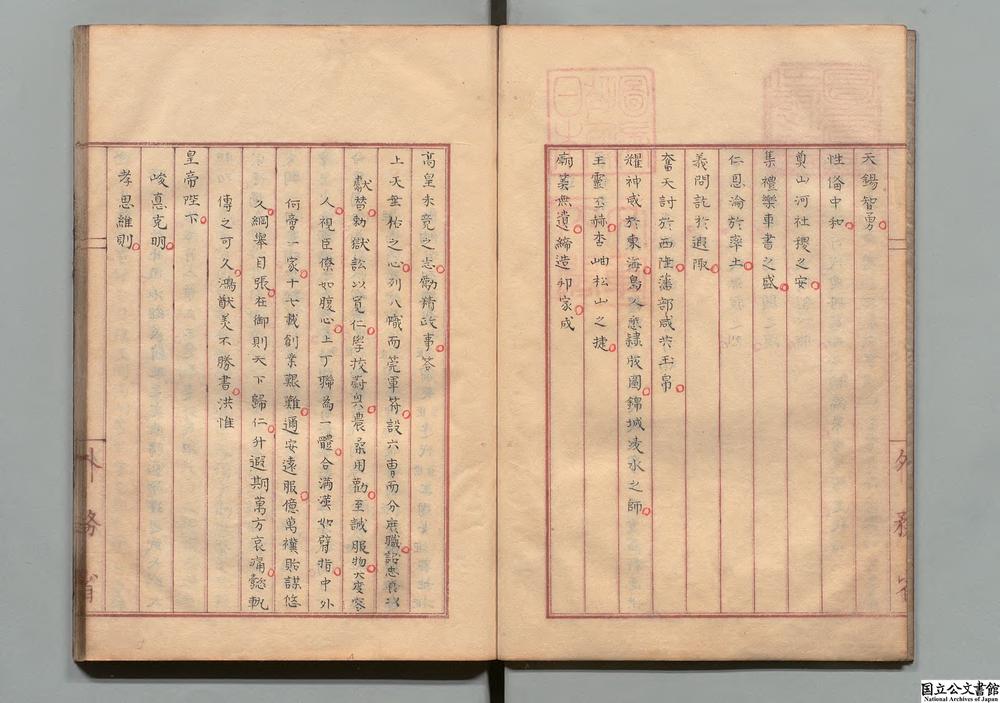 天錫智勇
性偹中和
奠山河社稷之安
集禮樂車書之盛
仁恩淪於率土
義問訖於遐陬
奮天討於西陸藩部咸共玉帛
耀神威於東海島人悉隷版圖錦城凌水之師
王靈丕赫杏岫松山之捷
廟筭無遺締造邦家成
高皇未竟之志勵精政事答
上天垂祐之心列八幟而筦軍符設六曹而分庶職詔忠良以
獻替勅獄訟以寬仁學校蔚興農桑用勸至誠服物大度容
人視臣僚如腹心上丁聯為一體合滿漢如臂指中外
何啻一家十七載創業艱難邇安遠服億萬襈貽謀悠
久綱舉目張在御則天下歸仁升遐期萬方哀痛懿軌
傳之可久鴻猷美不勝書洪惟
皇帝陛下
峻惪克明
孝思維則
外務省
外務省
国立公文書館
National Archives of Japan